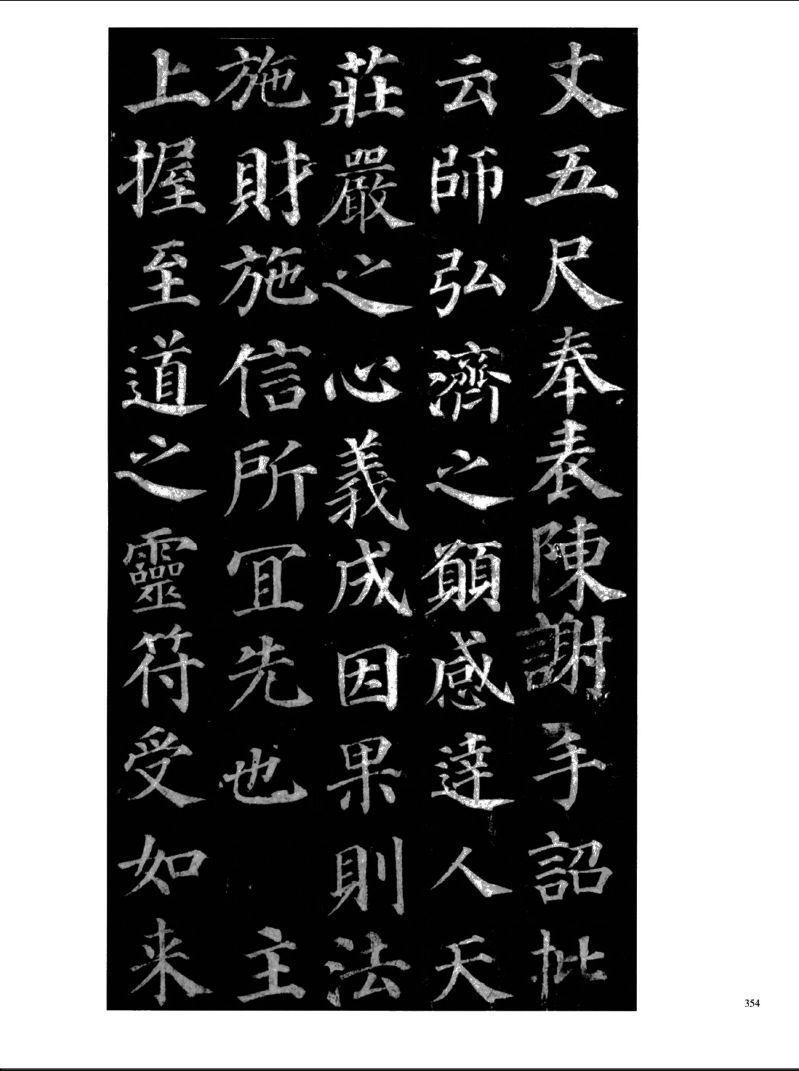 丈五尺奉表陳謝手詔批
云師弘濟之願感達人天
莊嚴之心義成因果則法
施財施信所冝先也 主
上握至道之靈符受如来
354